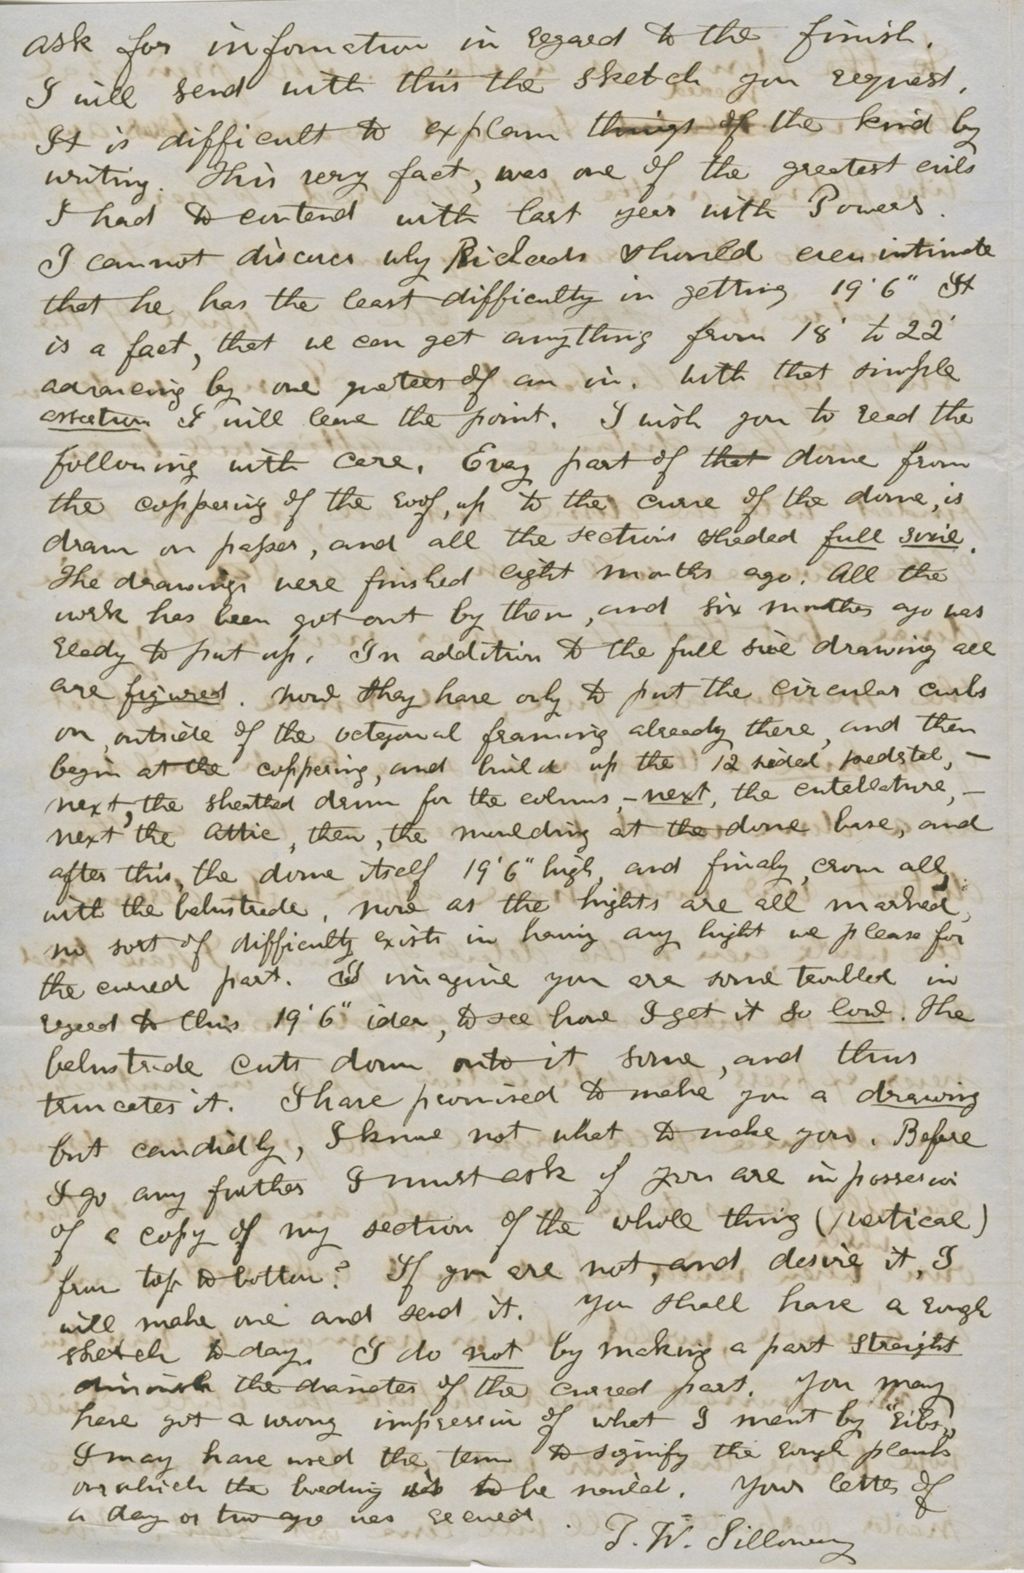 ask for information in regard to the finish.
I will send with this the sketch you request.
It is difficult to explain things of the kind by
writing. This very fact, was one of the greatest evils
I had to contend with last year with Powers.
I cannot discover why Richards should even intimate
that he has the least difficulty in getting 19'6" It
is a fact, that we can get anything from 18' to 22'
advancing by one quarter of an in. With that simple
assertion I will leave the point. I wish you to read the
following with care. Every part of that dome from
the coppering of the roof, up to the curve of the dome, is
drawn on paper, and all the sections shaded full size.
The drawings were finished eight months ago. All the
work has been got out by them, and six months ago was
ready to put up. In addition to the full size drawing all
are figured. Now they have only to put the circular curbs
on, outside of the octagonal framing already there, and then
begin at the coppering, and build up the 12 sided pedestal, –
next, the sheathed drum for the colums, – next, the entellature, –
next the Attic, then, the moulding at the dome base, and
after this, the dome itself 19'6" high, and finaly, crown all,
with the balustrade. Now as the hights are all marked,
no sort of difficulty exists in having any hight we please for
the curved part. I imagine you are some troubled in
regard to this 19'6" idea, to see how I get it so low. The
balustrade cuts down onto it some, and thus
truncates it. I have promised to make you a drawing
but candidly, I know not what to make you. Before
I go any further I must ask if you are in possession
of a copy of my section of the whole thing (vertical)
from top to bottom? If you are not, and desire it, I
will make one and send it. You shall have a rough
sketch to-day. I do not by making a part straight
diminish the diameter of the curved part. You may
have got a wrong impression of what I ment by "ribs",
I may have used the term to signify the rough planks
on which the boarding is to be nailed. Your letter of
a day or two ago was received.
T. W. Silloway